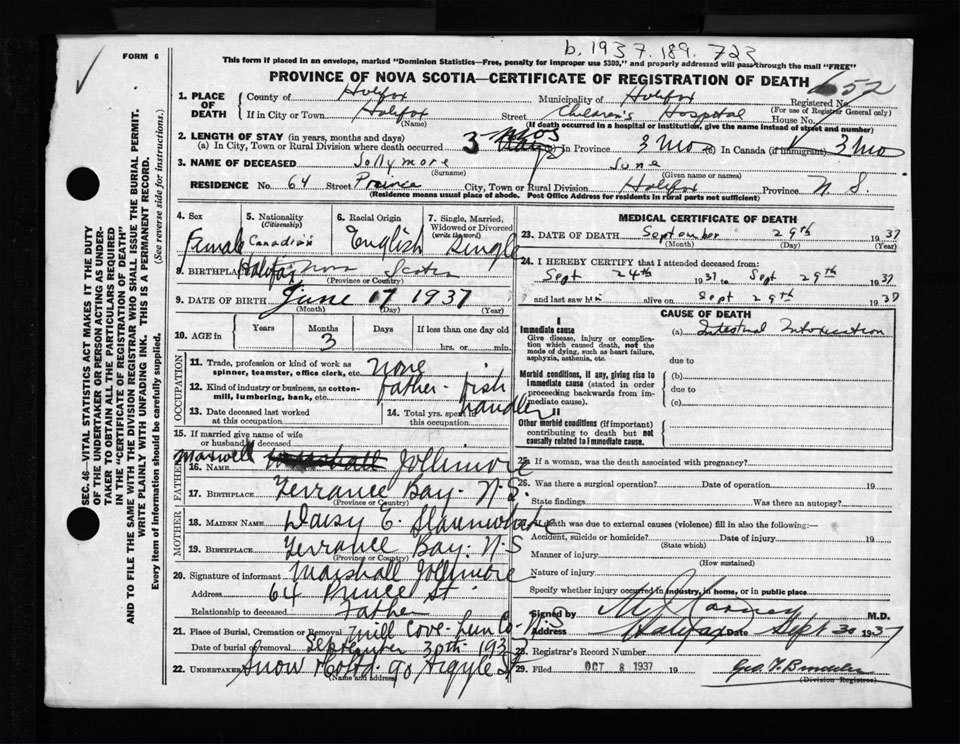 b. 1937. 189. 723
FORM 6
This form if placed in an envelope, marked "Dominion Statistics—Free, penalty for improper use $300," and properly addressed will pass through the mail "FREE"
PROVINCE OF NOVA SCOTIA—CERTIFICATE OF REGISTRATION OF DEATH
652
1. PLACE OF DEATH County of Halifax Municipality of Halifax Registered No.
(For use of Registrar General only)
If in City or Town Halifax Street Children's Hospital House No.
(Name) (If death occurred in a hospital or institution, give the name instead of street and number)
2. LENGTH OF STAY (in years, months and days)
(a) In City, Town or Rural Division where death occurred 3 mos (b) in Province 3 Mo (c) in Canada (if immigrant) 3 Mo
3. NAME OF DECEASED Jollymore June
(Surname) (Given name or names)
RESIDENCE No. 64 Street Prince City, Town or Rural Division Halifax Province N S.
(Residence means usual place of abode. Post Office Address for residents in rural parts not sufficient)
4. Sex Female
5. Nationality (Citizenship) Canadian
6. Racial Origin English
7. Single, Married, Widowed or Divorced (write the word) Single
8. BIRTHPLACE Halifax Nova Scotia
(Province or Country)
9. DATE OF BIRTH June 17 1937
(Month) (Day) (Year)
10. AGE in Years Months 3 Days If less than one day old
hrs. or min.
OCCUPATION
11. Trade, profession or kind of work as spinner, teamster, office clerk, etc. none
12. Kind of industry or business, as cotton-mill, lumbering, bank, etc. father - fish handler
13. Date deceased last worked at this occupation
14. Total yrs. spent in this occupation
15. If married give name of wife or husband of deceased
FATHER
16. NAME Maxwell Marshall Jollimore
17. BIRTHPLACE Terrance Bay. N.S.
(Province or Country)
MOTHER
18. MAIDEN NAME Daisy E. Slaunwhite
19. BIRTHPLACE Terrance Bay. N.S
(Province or Country)
20. Signature of informant Marshall Jollimore
Address 64 Prince St
Relationship to deceased Father
21. Place of Burial, Cremation or Removal Mill Cove - Lun Co. N.S
Date of burial or removal September 30th 1937
22. Undertaker Snow & Co Ltd. 90 Argyle St
(Name and address)
MEDICAL CERTIFICATE OF DEATH
23. DATE OF DEATH September 29th 1937
(Month) (Day) (Year)
24. I HEREBY CERTIFY that I attended deceased from:
Sept 24th 1937 to Sept 29th 1937
and last saw him alive on Sept 29th 1937
CAUSE OF DEATH
I
Immediate cause
Give disease, injury or complication which caused death, not the mode of dying, such as heart failure, asphyxia, asthenia, etc.
(a) Intestinal Intoxication
due to
Morbid conditions, if any, giving rise to immediate cause (stated in order proceeding backwards from immediate cause).
(b)
due to
(c)
II
Other morbid conditions (if important) contributing to death but not causally related to immediate cause.
25. If a woman, was the death associated with pregnancy?
26. Was there a surgical operation? Date of operation 19
State findings Was there an autopsy?
27. If death was due to external causes (violence) fill in also the following:—
Accident, suicide or homicide? Date of injury 19
(State which)
Manner of injury
(How sustained)
Nature of injury
Specify whether injury occurred in industry, in home, or in public place
Signed by M.D.
Address Halifax Date Sept 30 1937
28. Registrar's Record Number
29. Filed OCT 8 1937 19
(Division Registrar)
SEC. 46—VITAL STATISTICS ACT MAKES IT THE DUTY OF THE UNDERTAKER OR PERSON ACTING AS UNDERTAKER TO OBTAIN ALL THE PARTICULARS REQUIRED IN THE "CERTIFICATE OF REGISTRATION OF DEATH"
AND TO FILE THE SAME WITH THE DIVISION REGISTRAR WHO SHALL ISSUE THE BURIAL PERMIT.
WRITE PLAINLY WITH UNFADING INK. THIS IS A PERMANENT RECORD.
Every item of information should be carefully supplied. (See reverse side for instructions.)